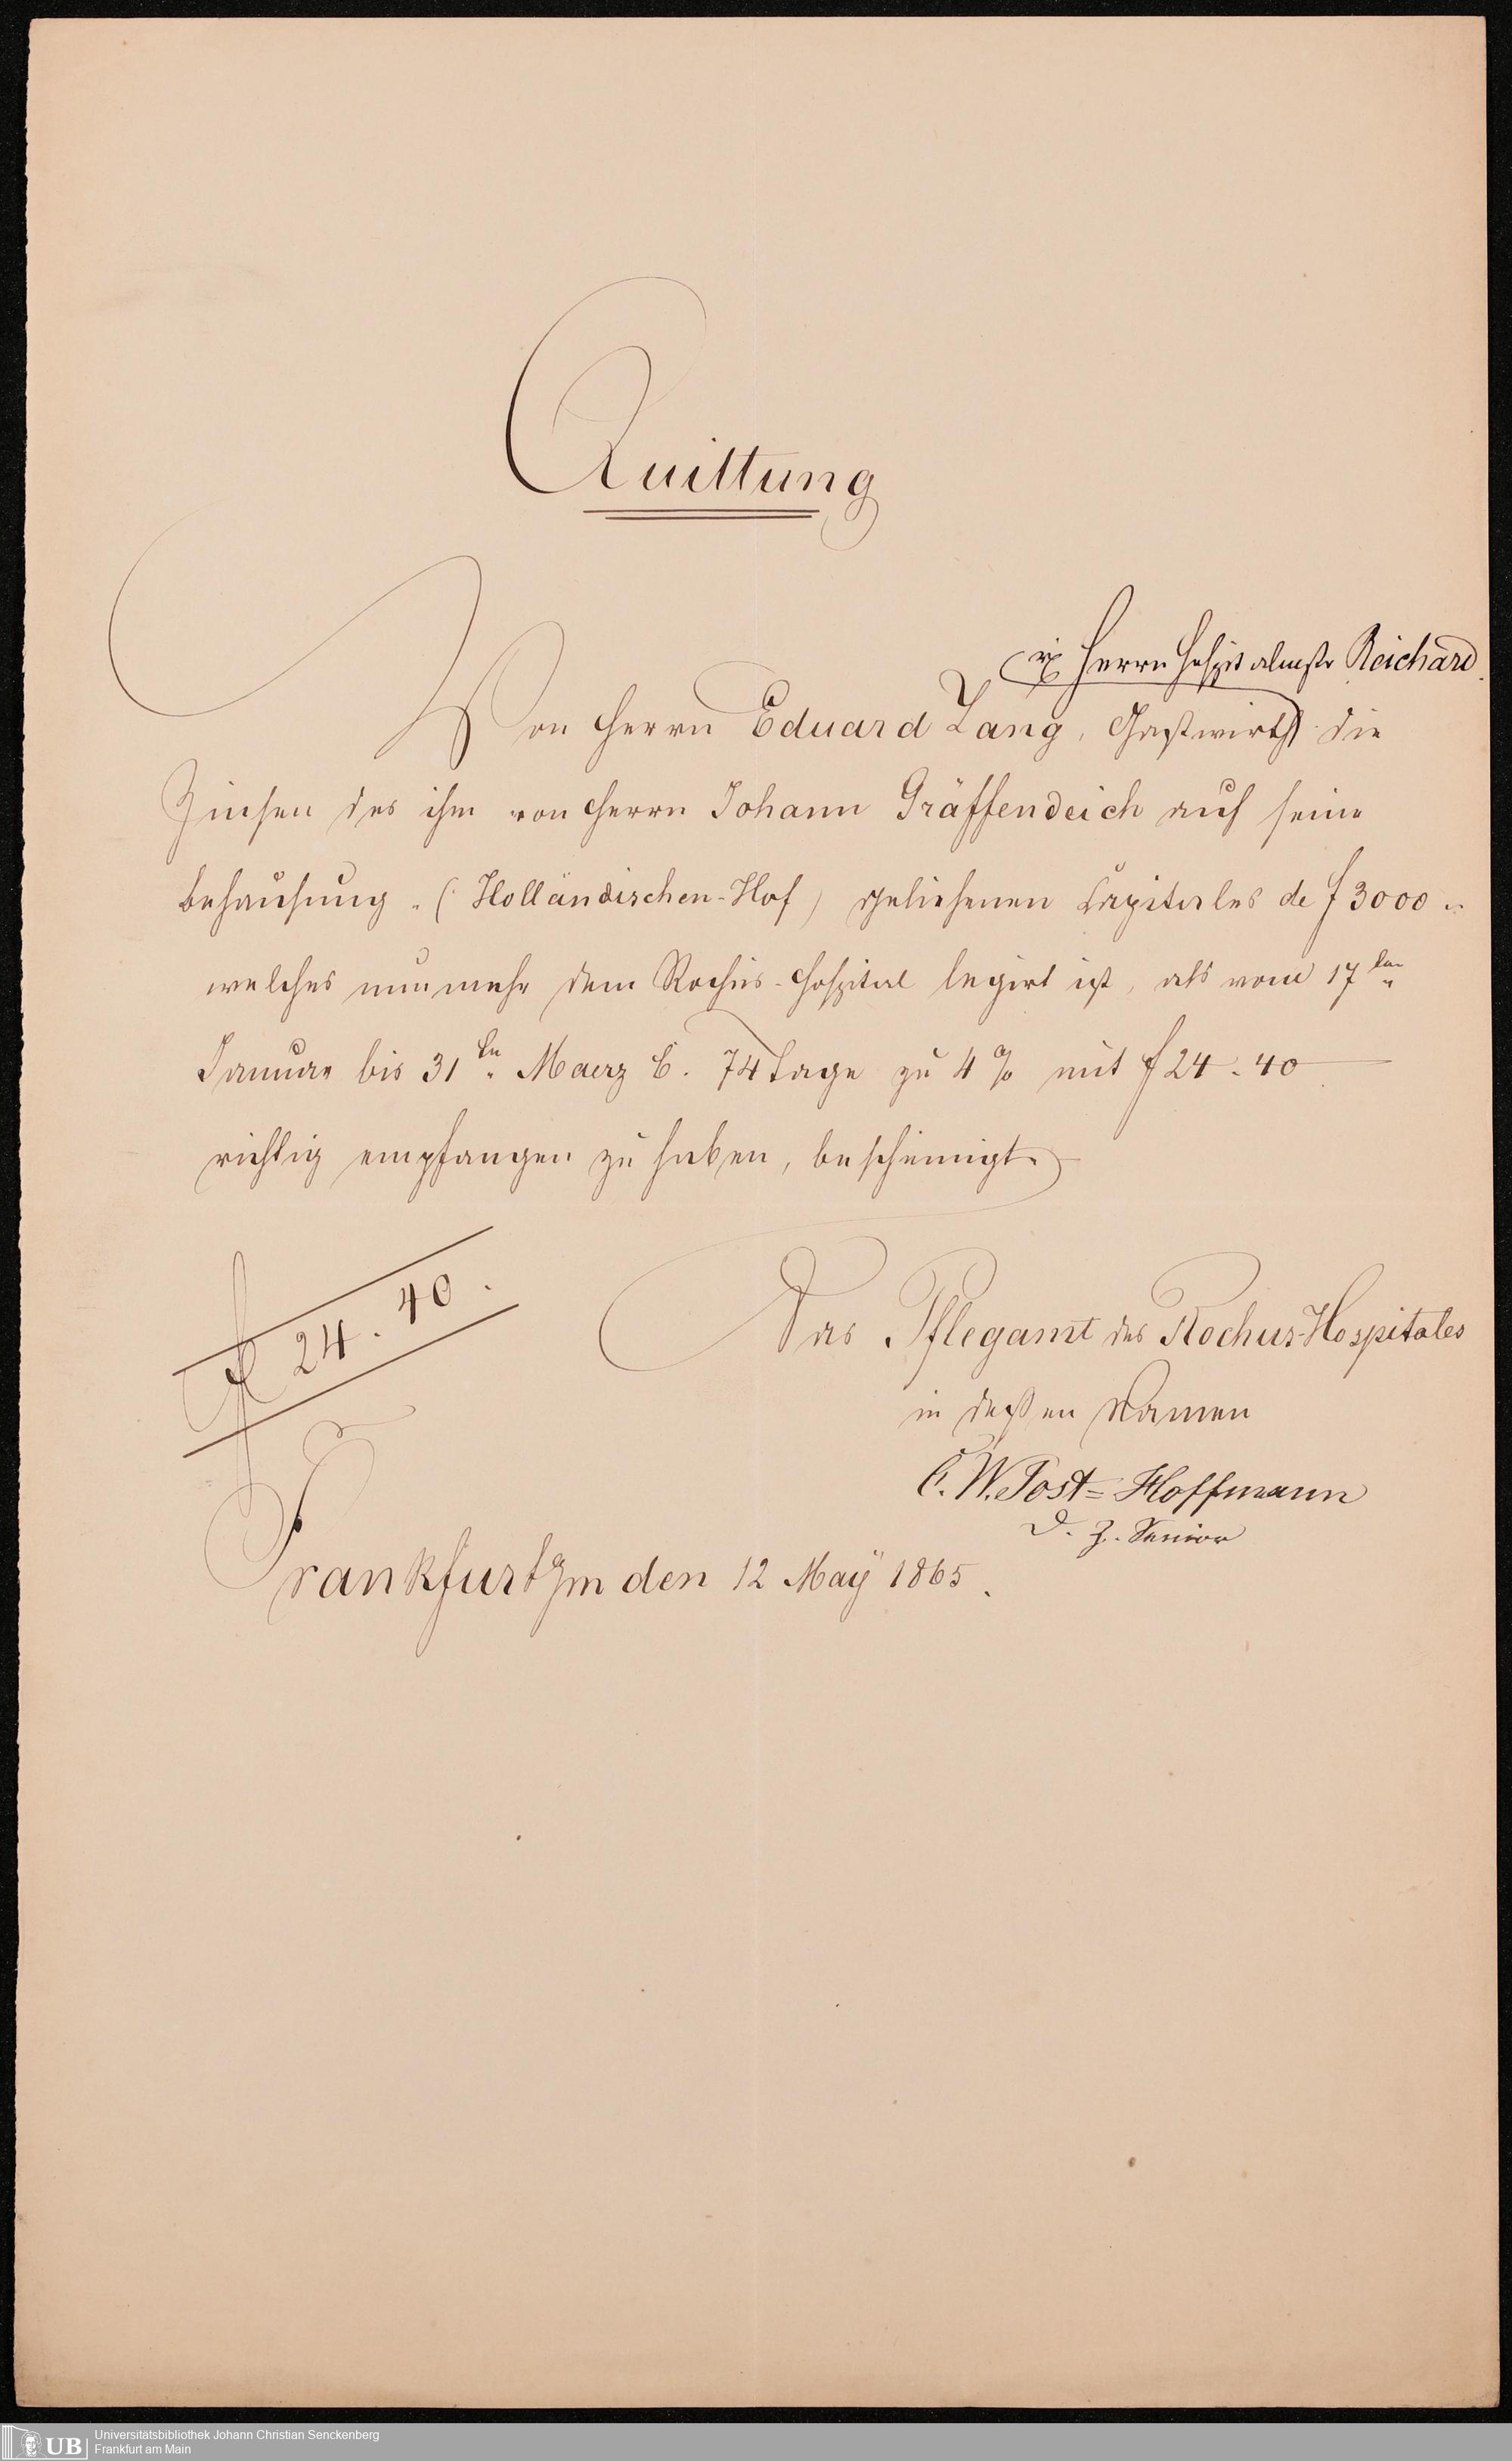 Quittung
Herrn Hospitalmstr Reichard
Von Herrn Eduard Lang, Gastwirth die
Zinsen des ihm von Herrn Johann Gräffendeich auf seine
Behausung „ (Holländischen-Hof) geliehenen Capitales de f 3000 „
welches nunmehr dem Rochus-Hospital legirt ist, als vom 17ten
Januar bis 31ten Maerz c. 74 Tage zu 4% mit f 24. 40
richtig empfangen zu haben, bescheinigt.
f 24. 40.
Das Pflegamt des Rochus-Hospitales
in deßen Namen
C. W. Post=Hoffmann
d. Z. Senior
Frankfurt a/m den 12 Maÿ 1865.
UB
Universitätsbibliothek Johann Christian Senckenberg
Frankfurt am Main